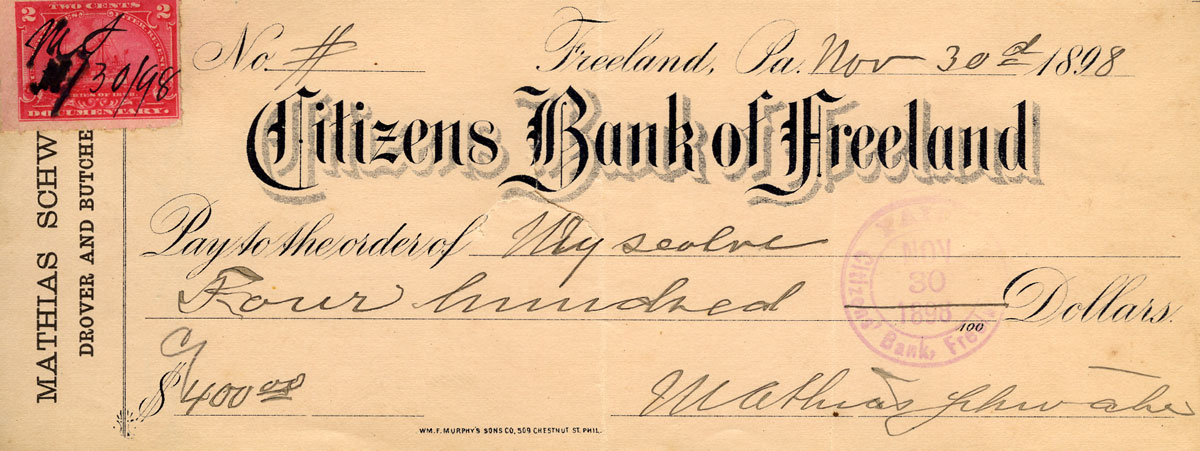 2 TWO CENTS 2
M S
30/98
DOCUMENTARY.
No. # Freeland, Pa. Nov 30d 1898
Citizens Bank of Freeland
MATHIAS SCHW
DROVER AND BUTCHE
Pay to the order of My seolve
Four hundred 100 Dollars.
$400 00
Mathias
NOV
30
1898
Citizens' Bank, Free
WM. F. MURPHY'S SONS CO, 509 CHESTNUT ST. PHIL.